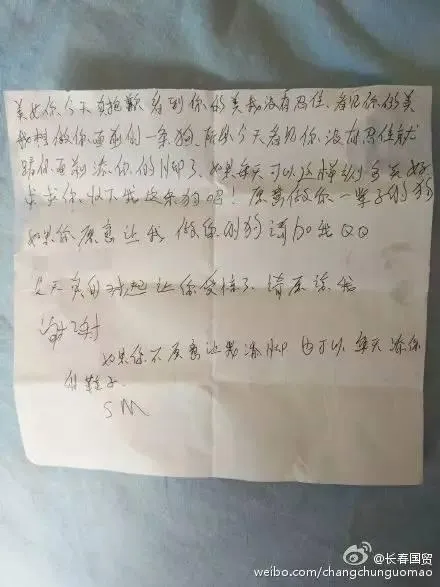 美女你今天真抱歉看到你的美我没有忍住、看见你的美
我想做你面前的一条狗、所以今天看见你没有忍住就
跪你面前添你的脚了、如果每天可以这样多好
求求你、收下我这条狗吧！愿意做你一辈子的狗
如果你愿意让我做你的狗请加我QQ
今天真的对起让你受惊了请原谅我
谢谢
如果你不愿意让我添脚也可以每天添你
的鞋子
SM
@长春国贸
weibo.com/changchunguomao